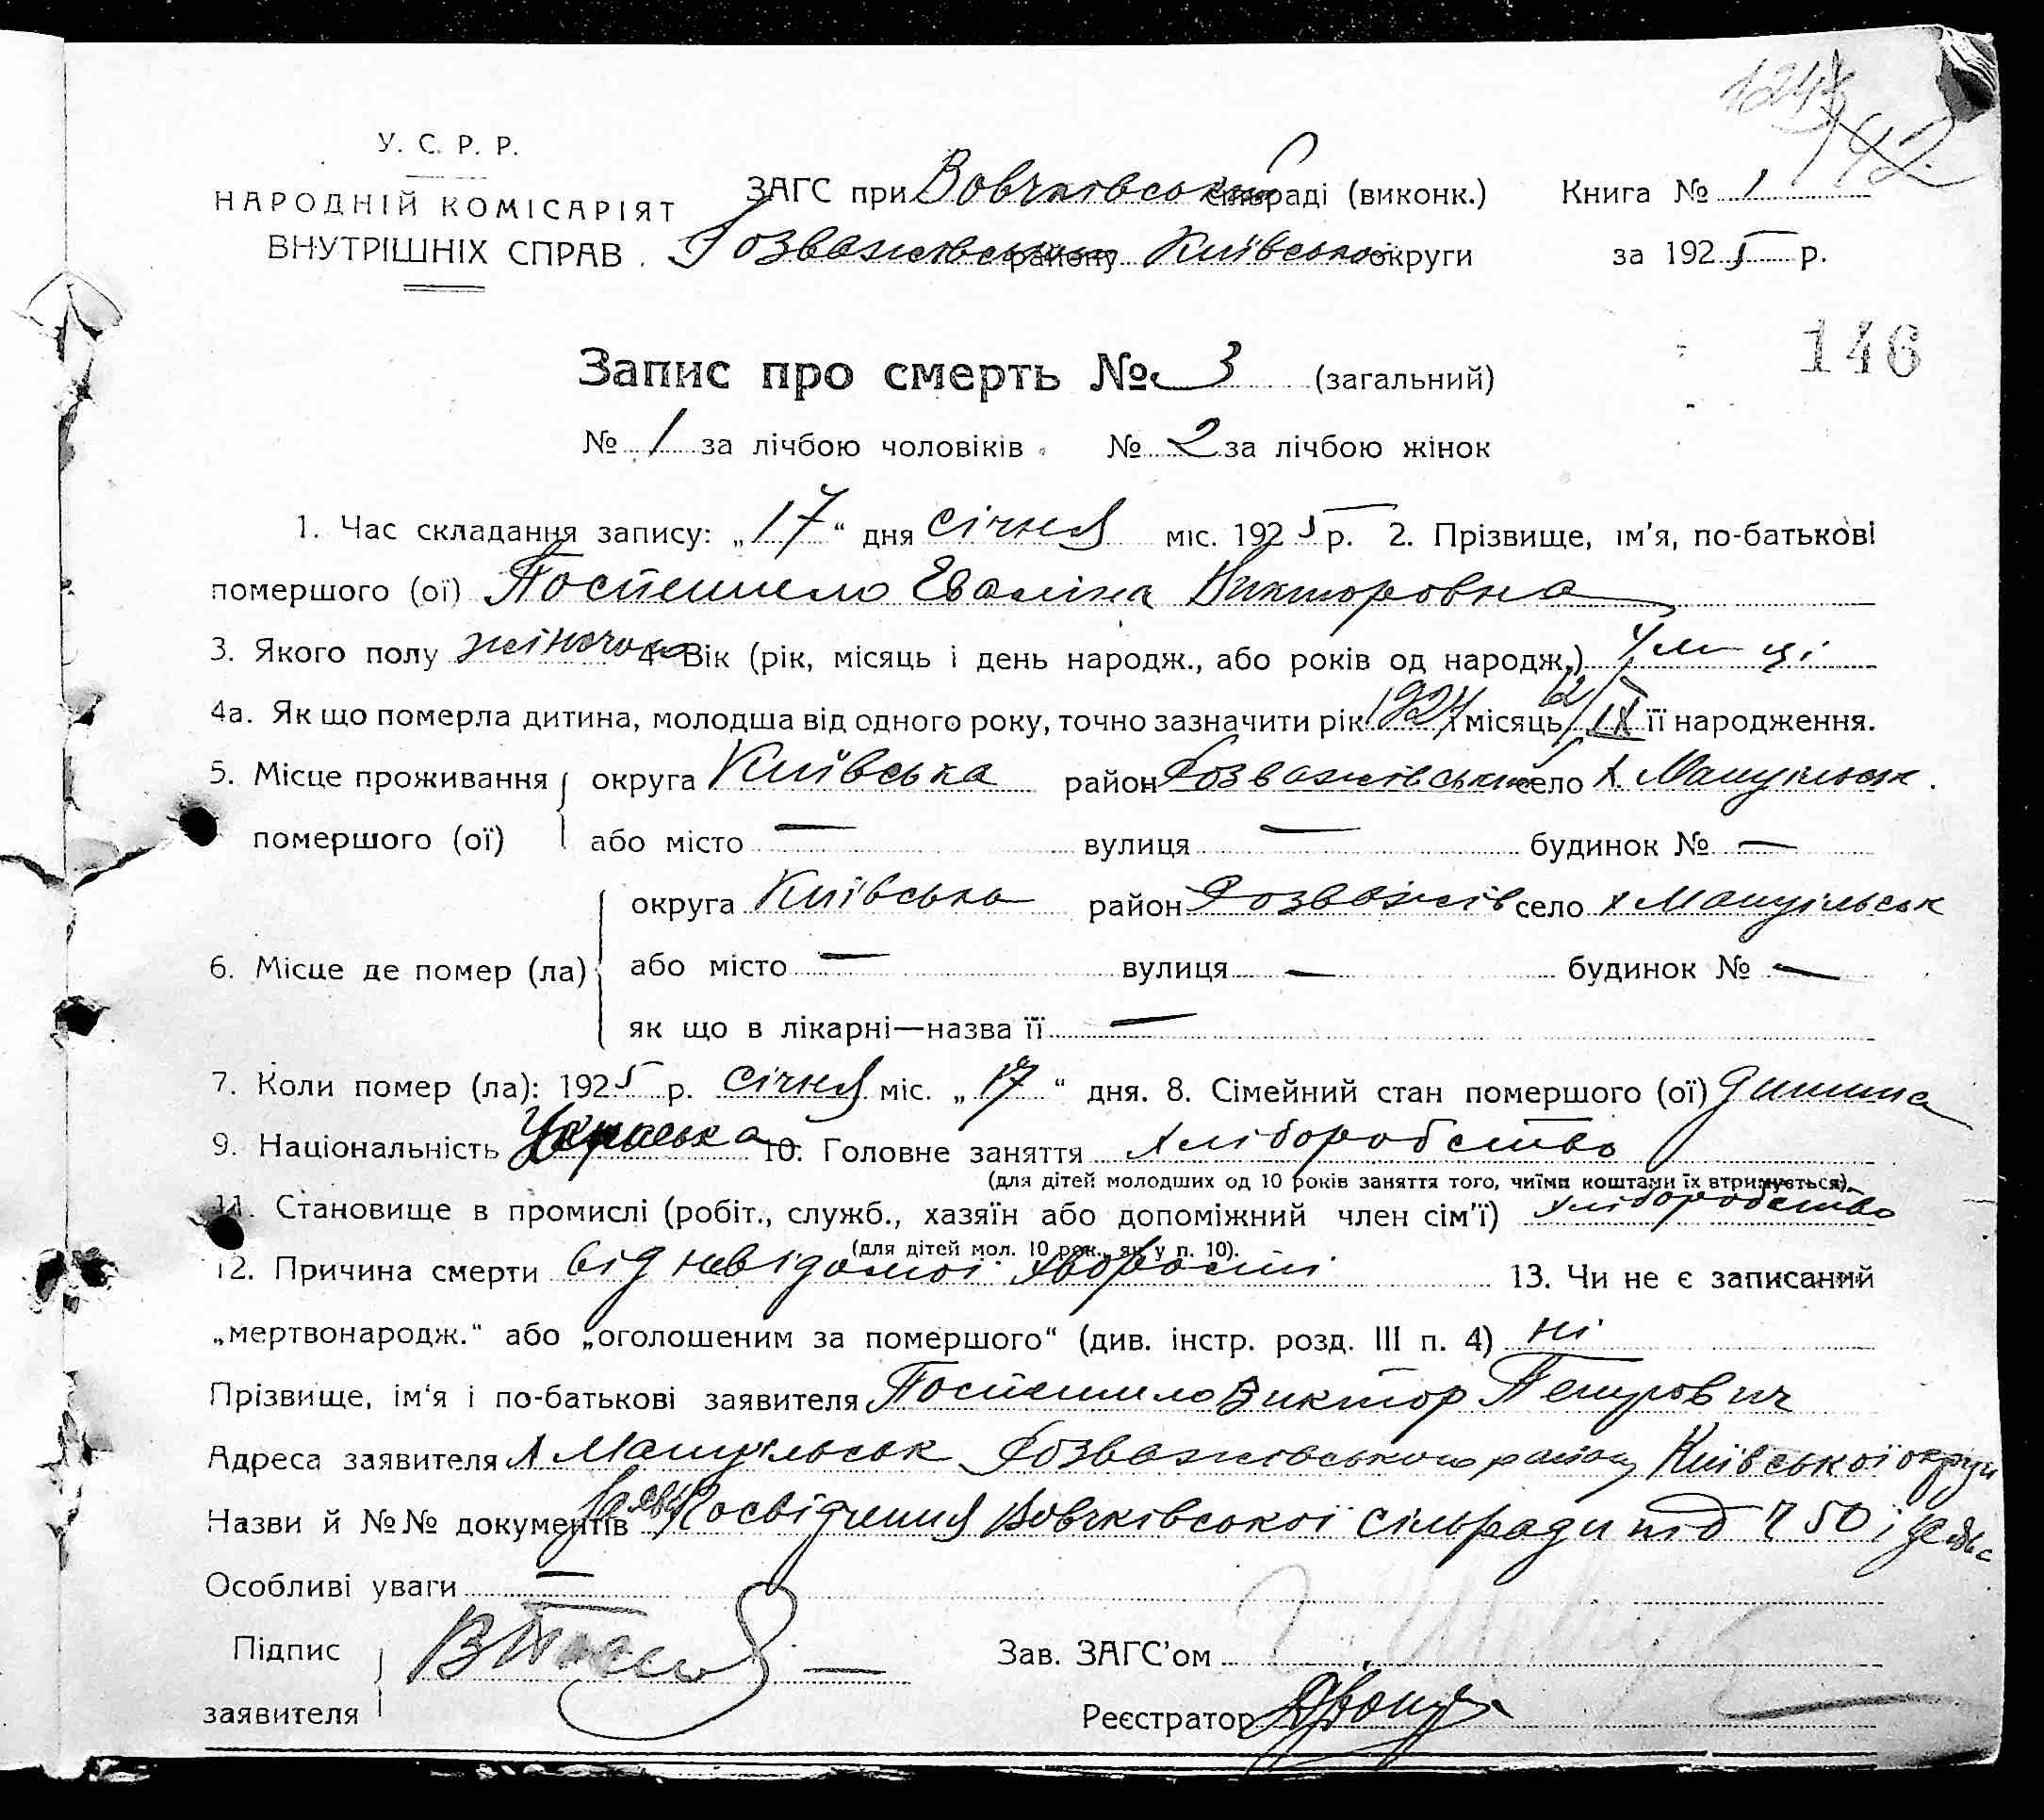 142
У. С. Р. Р.
НАРОДНІЙ КОМІСАРІЯТ
ВНУТРІШНІХ СПРАВ.
ЗАГС при Вовчківській сільраді (виконк.) Книга № 1
Розважівського району Київської округи за 1925 р.
146
Запис про смерть № 3 (загальний)
№ 1 за лічбою чоловіків. № 2 за лічбою жінок
1. Час складання запису: „17“ дня січня міс. 1925 р. 2. Прізвище, ім'я, по-батькові
помершого (ої) Поспешило Еваліна Викторовна
3. Якого полу жіночого 4. Вік (рік, місяць і день народж., або років од народж.) 4 м-ці
4а. Як що померла дитина, молодша від одного року, точно зазначити рік 1924 і місяць 12/IX її народження.
5. Місце проживання округа Київська район Розважівський село х.
помершого (ої) або місто — вулиця — будинок № —
округа Київська район Розважів село х
6. Місце де помер (ла) або місто — вулиця — будинок № —
як що в лікарні—назва її —
7. Коли помер (ла): 1925 р. січня міс. „17“ дня. 8. Сімейний стан помершого (ої) дитина
9. Національність 10. Головне заняття хліборобство
(для дітей молодших од 10 років заняття того, чиїми коштами їх втримується).
11. Становище в промислі (робіт., служб., хазяїн або допоміжний член сім'ї) хліборобство
(для дітей мол. 10 рок., як у п. 10).
12. Причина смерти від невідомої хворости 13. Чи не є записаний
„мертвонародж.“ або „оголошеним за помершого“ (див. інстр. розд. III п. 4) ні
Прізвище, ім'я і по-батькові заявителя Поспешило Виктор Петрович
Адреса заявителя х Розважівського району Київської округи
Назви й №№ документів Посвідчення Вовчківської сільради під № 50 і
Особливі уваги —
Підпис
заявителя
Зав. ЗАГС'ом
Реєстратор